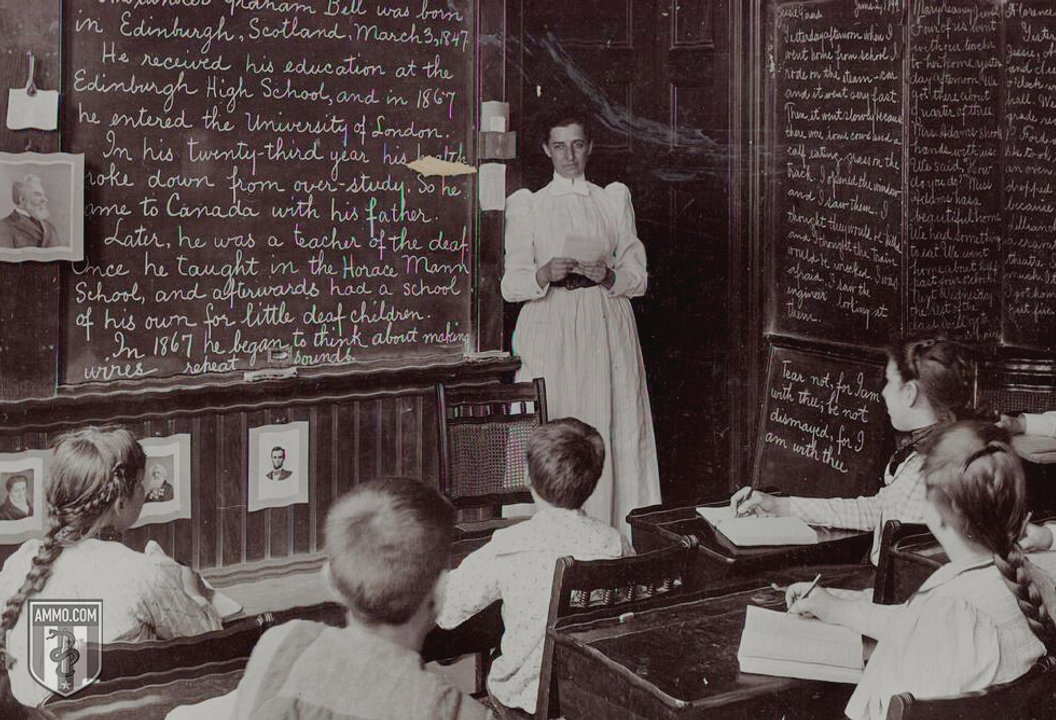 Graham Bell was born
in Edinburgh, Scotland, March 3, 1847
He received his education at the
Edinburgh High School, and in 1867
he entered the University of London.
In his twenty-third year his
roke down from over-study. So he
ame to Canada with his father.
Later, he was a teacher of the deaf.
Once he taught in the Horace Mann
School, and afterwards had a school
of his own for little deaf children.
In 1867 he began to think about making
wires repeat sounds.
Yesterday afternoon when I
went home from school I
rode on the steam-car
and it went very fast
Then it went slowly because
there were some cows and a
calf eating grass on the
track. I opened the window
and I saw them. I
thought they would be killed
and I thought the train
would be wrecked. I was
afraid. I saw the
engineer looking at
them.
Four of us went
with our teacher
to her home yester
day afternoon. We
got there about
quarter of three
Mrs. Adams shook
hands with us.
We said, "How
do you do?" Miss
Adams has a
beautiful home
We had something
to eat. We went
home about half
past
Wednesday
the rest of the
class will go
Florence
Fear not, for I am
with thee; be not
dismayed, for I
am with thee
AMMO.COM